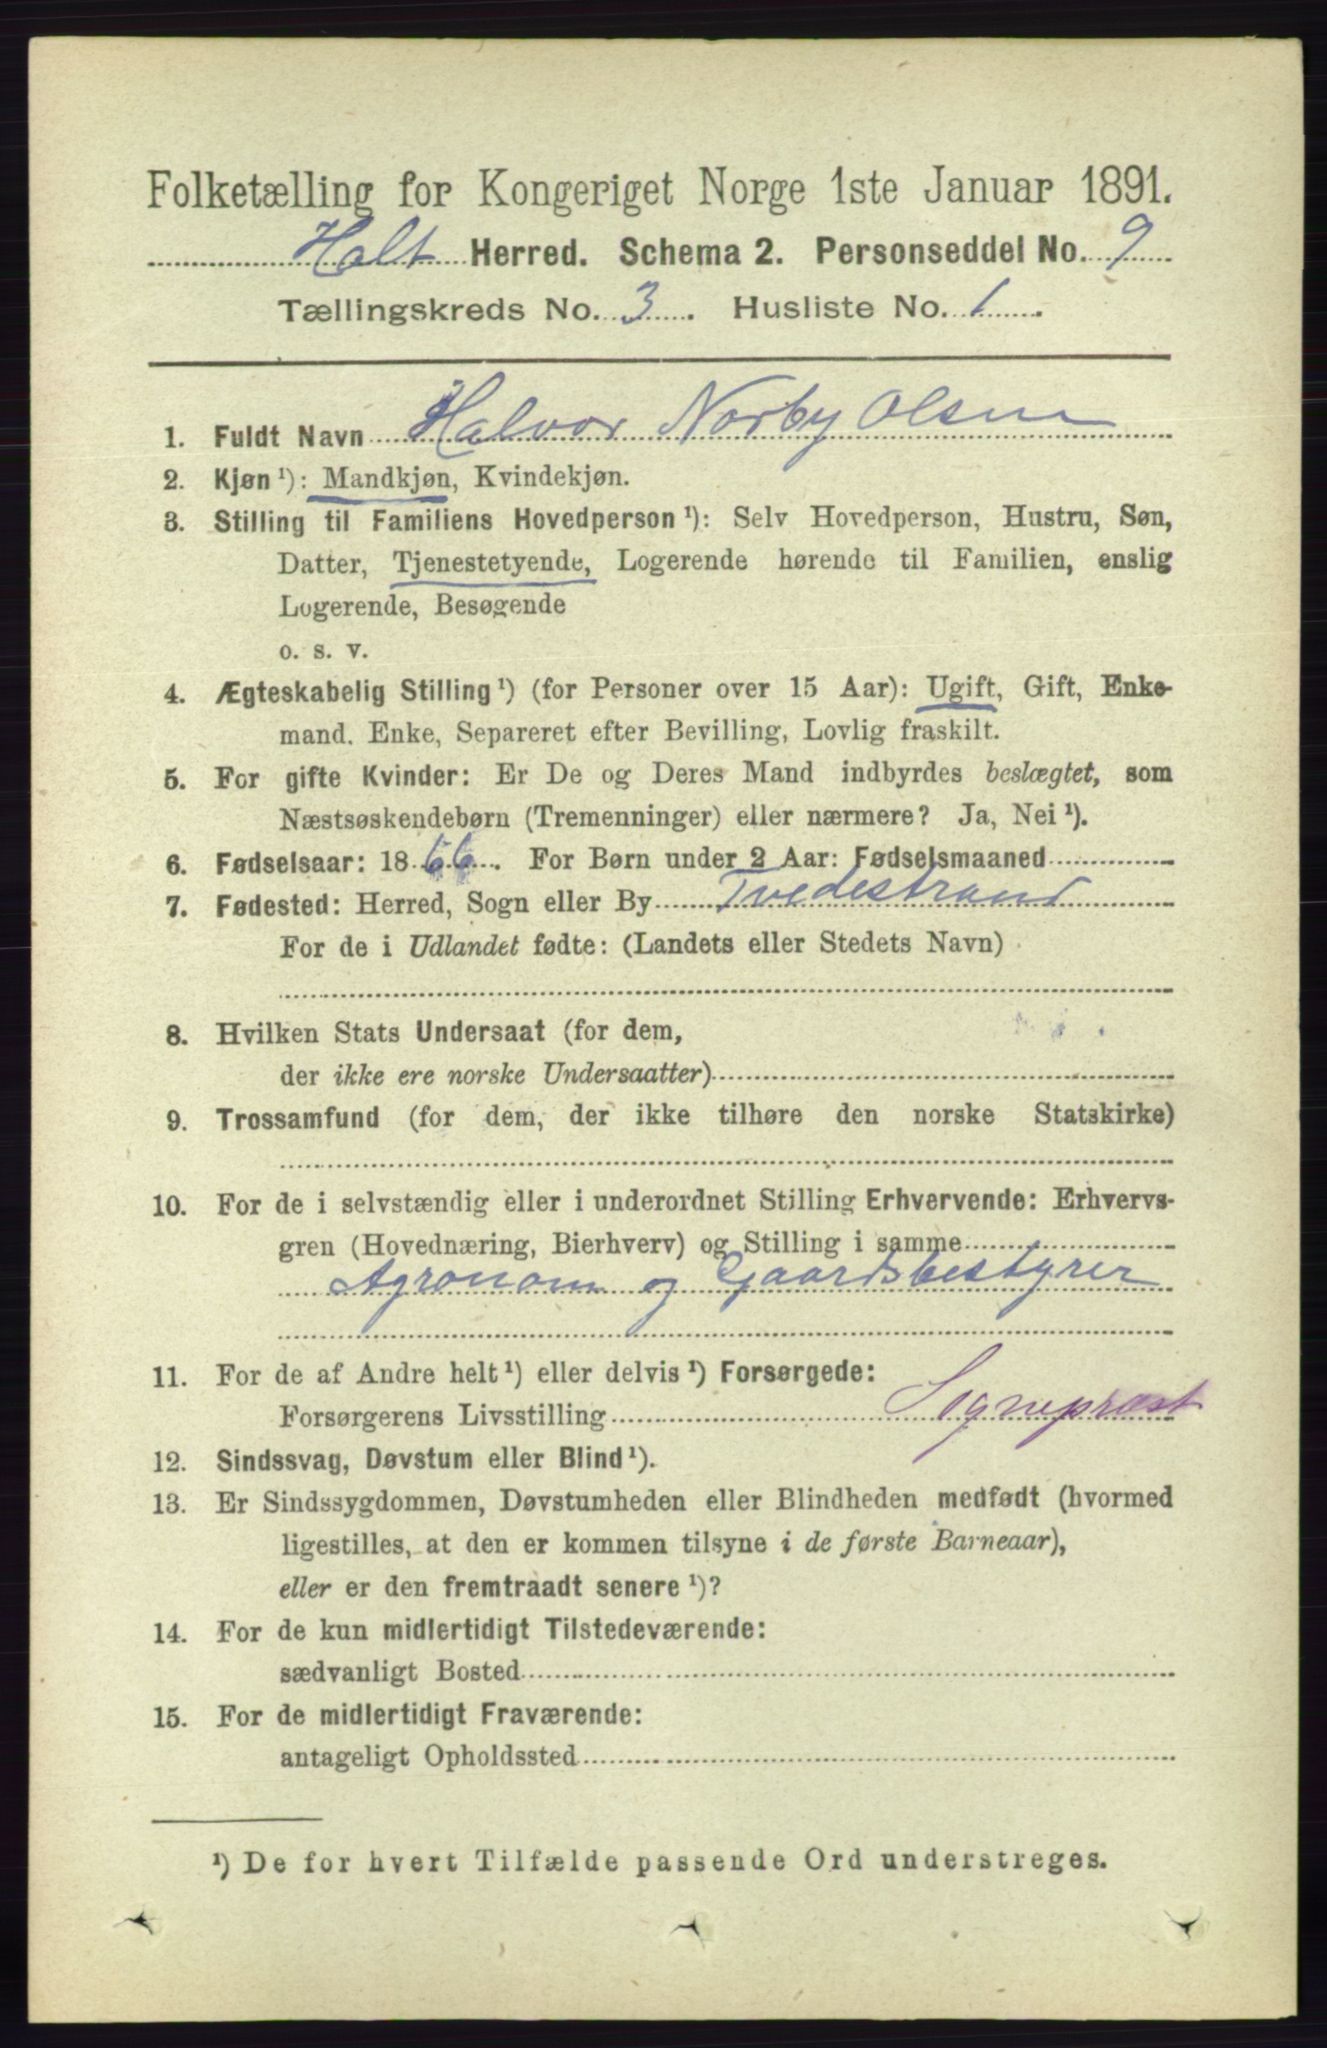 Folketælling for Kongeriget Norge 1ste Januar 1891.
Holt Herred. Schema 2. Personseddel No. 9
Tællingskreds No. 3. Husliste No. 1.
1. Fuldt Navn Halvor Norby Olsen
2. Kjøn ¹): Mandkjøn, Kvindekjøn.
3. Stilling til Familiens Hovedperson ¹): Selv Hovedperson, Hustru, Søn,
Datter, Tjenestetyende, Logerende hørende til Familien, enslig
Logerende, Besøgende
o. s. v.
4. Ægteskabelig Stilling ¹) (for Personer over 15 Aar): Ugift, Gift, Enke-
mand. Enke, Separeret efter Bevilling, Lovlig fraskilt.
5. For gifte Kvinder: Er De og Deres Mand indbyrdes beslægtet, som
Næstsøskendebørn (Tremenninger) eller nærmere? Ja, Nei ¹).
6. Fødselsaar: 1866. For Børn under 2 Aar: Fødselsmaaned
7. Fødested: Herred, Sogn eller By Tvedestrand
For de i Udlandet fødte: (Landets eller Stedets Navn)
8. Hvilken Stats Undersaat (for dem,
der ikke ere norske Undersaatter)
9. Trossamfund (for dem, der ikke tilhøre den norske Statskirke)
10. For de i selvstændig eller i underordnet Stilling Erhvervende: Erhvervs-
gren (Hovednæring, Bierhverv) og Stilling i samme
Agronom og Gaardsbestyrer
11. For de af Andre helt ¹) eller delvis ¹) Forsørgede:
Forsørgerens Livsstilling Sognepræst
12. Sindssvag, Døvstum eller Blind ¹).
13. Er Sindssygdommen, Døvstumheden eller Blindheden medfødt (hvormed
ligestilles, at den er kommen tilsyne i de første Barneaar),
eller er den fremtraadt senere ¹)?
14. For de kun midlertidigt Tilstedeværende:
sædvanligt Bosted
15. For de midlertidigt Fraværende:
antageligt Opholdssted
¹) De for hvert Tilfælde passende Ord understreges.